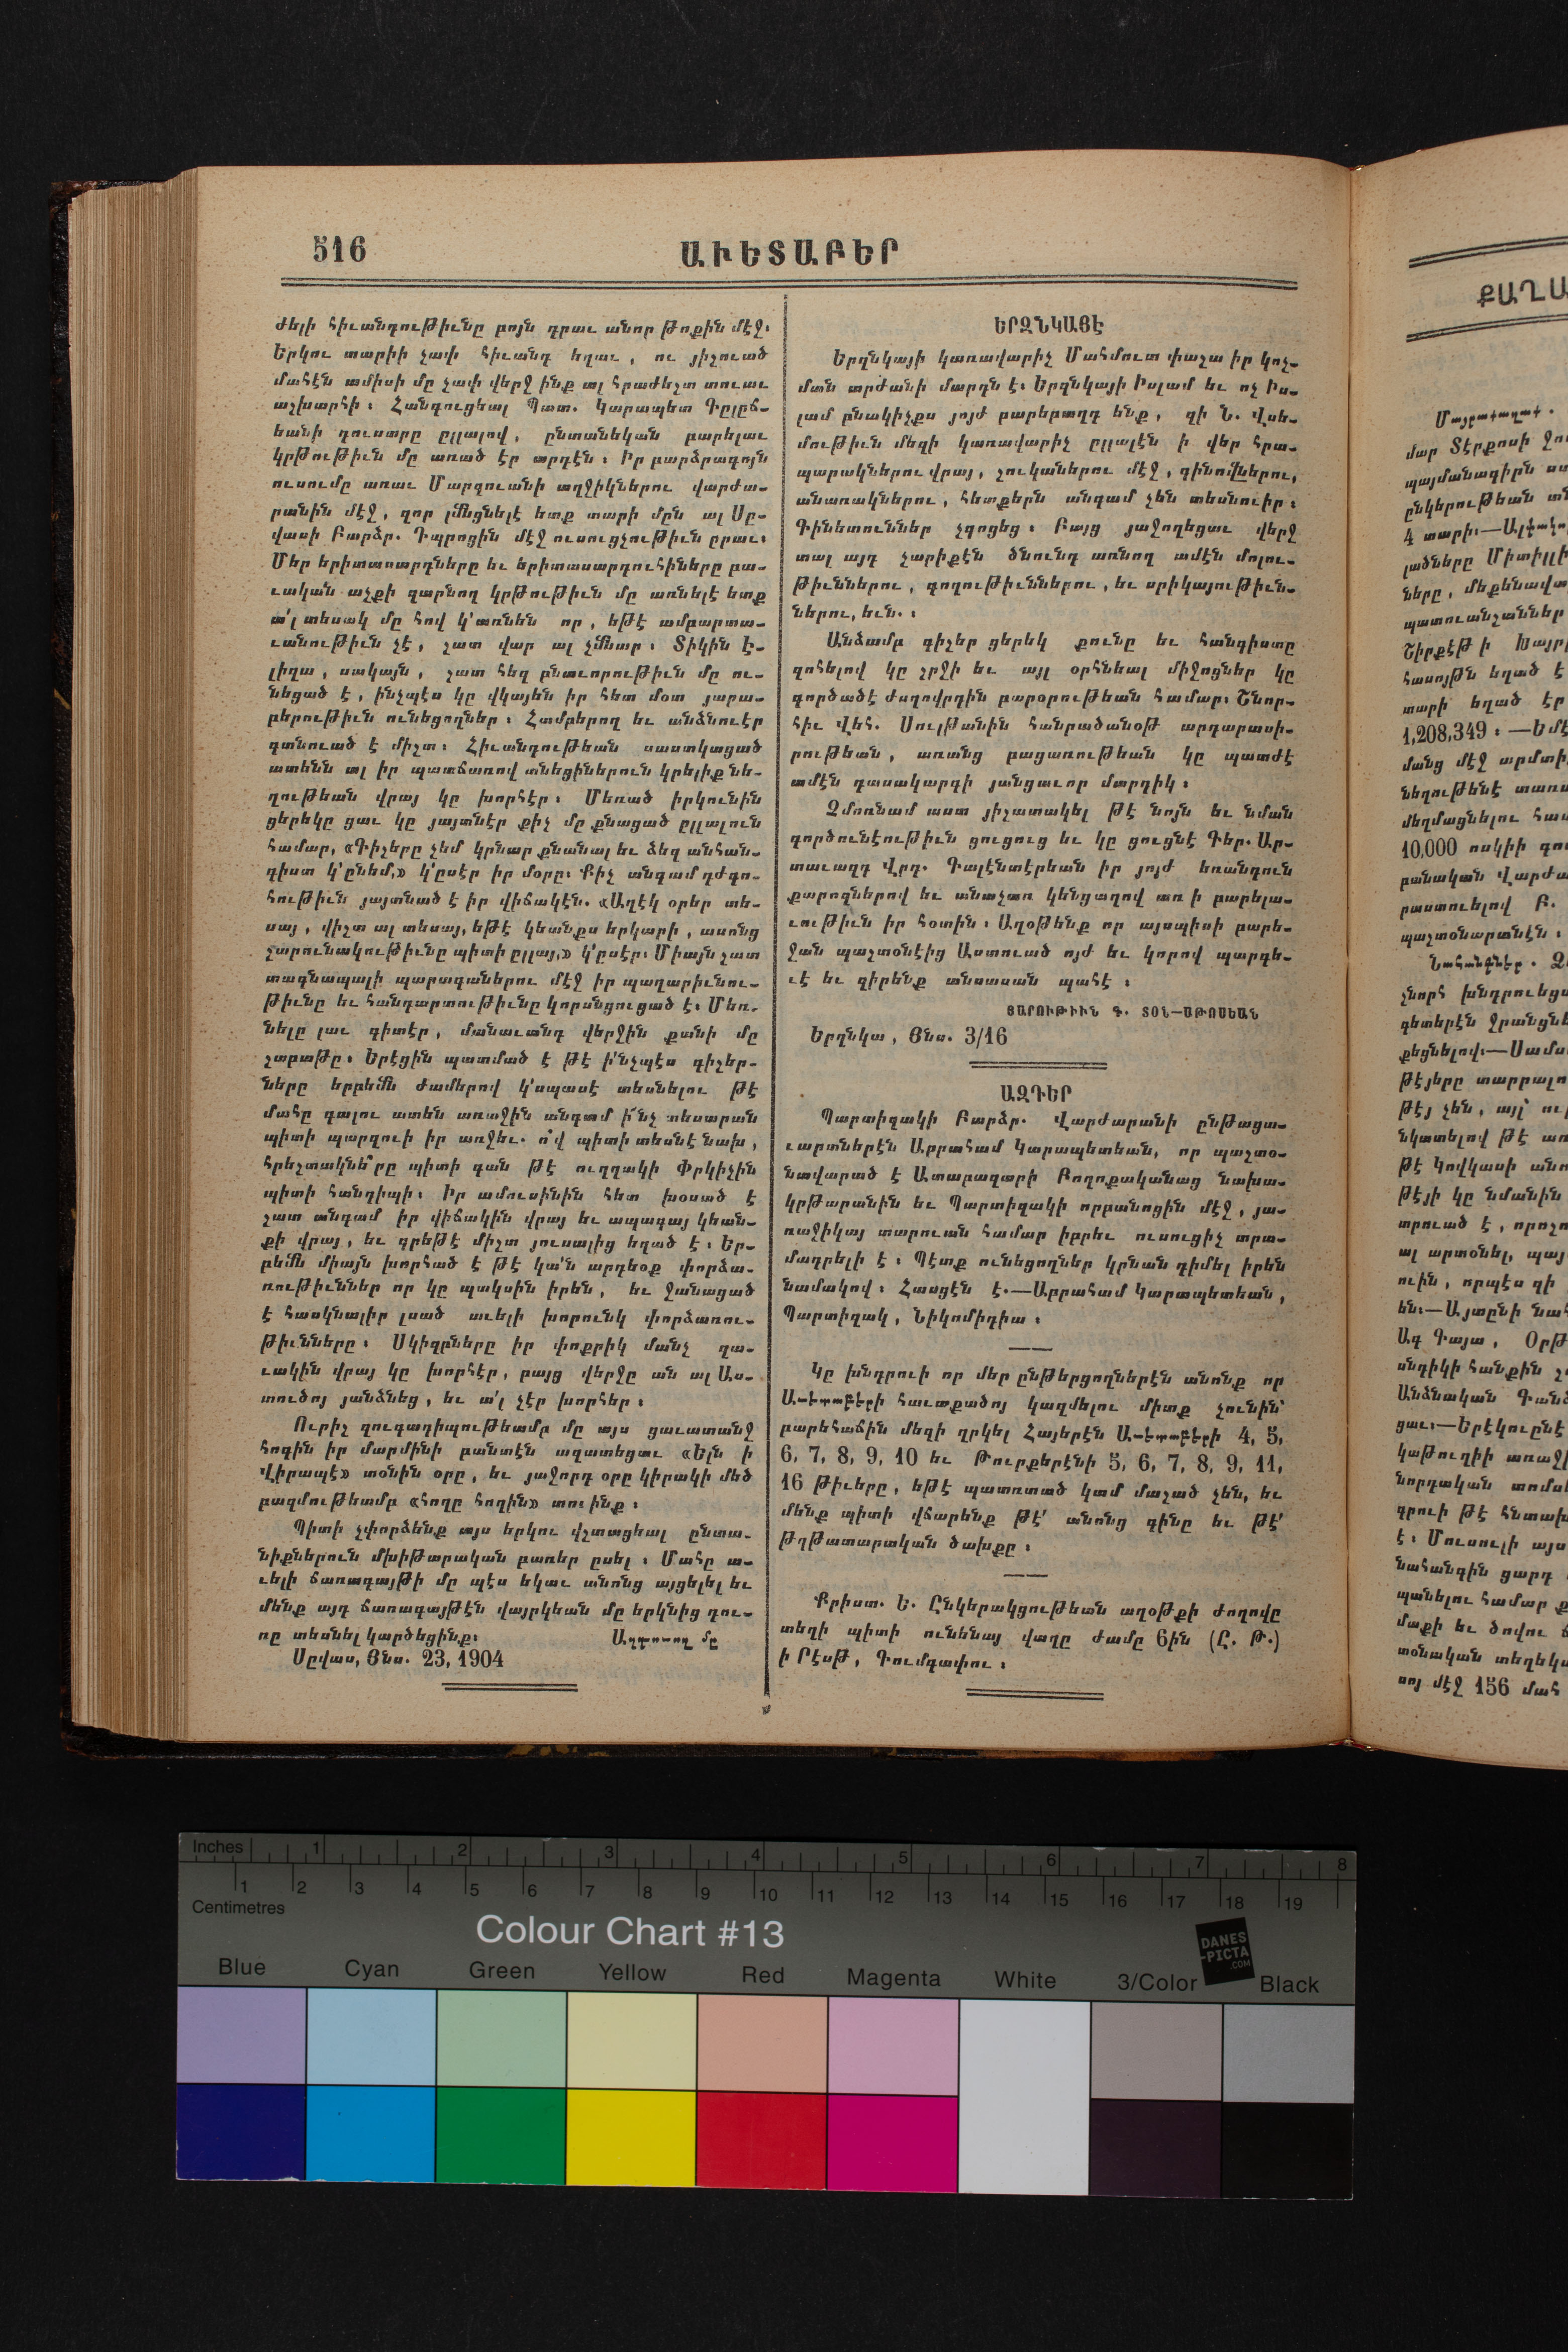 516
ԱՒԵՏԱԲԵՐ
ժելի հիւանդութիւնը բոյն դրաւ անոր թոքին մէջ։
Երկու տարիի չափ հիւանդ եղաւ, ու յիշուած
մահէն ամիսի մը չափ վերջ ինք ալ հրաժեշտ տուաւ
աշխարհի։ Հանգուցեալ Պատ. Կարապետ Գըլըճ-
եանի դուստրը ըլլալով, ընտանեկան բարելաւ
կրթութիւն մը առած էր արդէն։ Իր բարձրագոյն
ուսումը առաւ Մարզուանի աղջիկներու վարժա-
րանին մէջ, զոր լմնցնելէ ետք տարի մըն ալ Սը-
վասի Բարձր. Դպրոցին մէջ ուսուցչութիւն ըրաւ։
Մեր երիտասարդները եւ երիտասարդուհիները բա-
ւական աչքի զարնող կրթութիւն մը առնելէ ետք
ա՛լ տեսակ մը հով կ՚առնեն որ, եթէ ամբարտա-
ւանութիւն չէ, շատ վար ալ չմնար։ Տիկին Է-
լիզա, սակայն, շատ հեզ բնաւորութիւն մը ու-
նեցած է, ինչպէս կը վկայեն իր հետ մօտ յարա-
բերութիւն ունեցողներ։ Համբերող եւ անձնուէր
գտնուած է միշտ։ Հիւանդութեան սաստկացած
ատենն ալ իր պատճառով տնեցիներուն կրելիք նե-
ղութեան վրայ կը խորհէր։ Մեռած իրկունին
ցերեկը ցաւ կը յայտնէր քիչ մը քնացած ըլլալուն
համար, «Գիշերը չեմ կրնար քնանալ եւ ձեզ անհան-
գիստ կ՚ընեմ,» կ՚ըսէր իր մօրը։ Քիչ անգամ դժգո-
հութիւն յայտնած է իր վիճակէն. «Աղէկ օրեր տե-
սայ, վիշտ ալ տեսայ, եթէ կեանքս երկարի, ասոնց
շարունակութիւնը պիտի ըլլայ,» կ՚ըսէր։ Միայն շատ
տագնապալի պարագաներու մէջ իր պաղարիւնու-
թիւնը եւ հանդարտութիւնը կորսնցուցած է։ Մեռ-
նելը լաւ գիտէր, մանաւանդ վերջին քանի մը
շաբաթը։ Երէցին պատմած է թէ ի՛նչպէս գիշեր-
ները երբեմն ժամերով կ՚սպասէ տեսնելու թէ
մահը գալու ատեն առաջին անգամ ի՞նչ տեսարան
պիտի պարզուի իր առջեւ. ո՞վ պիտի տեսնէ նախ,
հրեշտակնե՞րը պիտի գան թէ ուղղակի Փրկիչին
պիտի հանդիպի։ Իր ամուսինին հետ խօսած է
շատ անգամ իր վիճակին վրայ եւ ապագայ կեան-
քի վրայ, եւ գրեթէ միշտ յուսալից եղած է։ Եր-
բեմն միայն խորհած է թէ կա՛ն արդեօք փորձա-
ռութիւններ որ կը պակսին իրեն, եւ ջանացած
է հասկնալիր լսած աւելի խորունկ փորձառու-
թիւնները։ Սկիզբները իր փոքրիկ մանչ զա-
ւակին վրայ կը խորհէր, բայց վերջը ան ալ Աս-
տուծոյ յանձնեց, եւ ա՛լ չէր խորհեր։
Ուրիշ զուգադիպութեամբ մը այս ցաւատանջ
հոգին իր մարմինի բանտէն ազատեցաւ «Ելն ի
Վիրապէ» տօնին օրը, եւ յաջորդ օրը կիրակի մեծ
բազմութեամբ «հողը հողին» տուինք։
Պիտի չփորձենք այս երկու վշտացեալ ընտա-
նիքներուն մխիթարական բառեր ըսել։ Մահը ա-
ւելի ճառագայթի մը պէս եկաւ անոնց այցելել եւ
մենք այդ ճառագայթէն վայրկեան մը երկնից դու-
ռը տեսնել կարծեցինք։
Աղօթող մը
Սըվաս, Յնս. 23, 1904
ԵՐԶՆԿԱՅԷ
Երզնկայի կառավարիչ Մահմուտ փաշա իր կոչ-
ման արժանի մարդն է։ Երզնկայի Իսլամ եւ ոչ Իս-
լամ բնակիչքս յոյժ բարեբաղդ ենք, զի Ն. Վսե-
մութիւն մեզի կառավարիչ ըլլալէն ի վեր հրա-
պարակներու վրայ, շուկաներու մէջ, գինովներու,
անառակներու, հետքերն անգամ չեն տեսնուիր։
Գինետուններ չգոցեց։ Բայց յաջողեցաւ վերջ
տալ այդ չարիքէն ծնունդ առնող ամէն մոլու-
թիւններու, գողութիւններու, եւ սրիկայութիւն-
ներու, եւն.։
Անձամբ գիշեր ցերեկ քունը եւ հանգիստը
զոհելով կը շրջի եւ այլ օրհնեալ միջոցներ կը
գործածէ ժողովրդին բարօրութեան համար։ Շնոր-
հիւ Վեհ. Սուլթանին հանրածանօթ արդարասի-
րութեան, առանց բացառութեան կը պատժէ
ամէն դասակարգի յանցաւոր մարդիկ։
Չմոռնամ աստ յիշատակել թէ նոյն եւ նման
գործունէութիւն ցուցուց եւ կը ցուցնէ Գեր. Ար-
տաւազդ Վրդ. Գալէնտէրեան իր յոյժ եռանդուն
քարոզներով եւ անաչառ կենցաղով առ ի բարելա-
ւութիւն իր հօտին։ Աղօթենք որ այսպիսի բարե-
ջան պաշտօնէից Աստուած ոյժ եւ կորով պարգե-
ւէ եւ զիրենք անսասան պահէ։
ՅԱՐՈՒԹԻՒՆ Գ. ՏՕՆ—ԱԹՈՍԵԱՆ
Երզնկա, Յնս. 3/16
ԱԶԴԵՐ
Պարտիզակի Բարձր. Վարժարանի ընթացա-
ւարտներէն Աբրահամ Կարապետեան, որ պաշտօ-
նավարած է Ատաբազարի Բողոքականաց նախա-
կրթարանին եւ Պարտիզակի որբանոցին մէջ, յա-
ռաջիկայ տարուան համար իբրեւ ուսուցիչ տրա-
մադրելի է։ Պէտք ունեցողներ կրնան դիմել իրեն
նամակով։ Հասցէն է.—Աբրահամ Կարապետեան,
Պարտիզակ, Նիկոմիդիա։
Կը խնդրուի որ մեր ընթերցողներէն անոնք որ
Աւետաբերի հաւաքածոյ կազմելու միտք չունին՝
բարեհաճին մեզի ղրկել Հայերէն Աւետաբերի 4, 5,
6, 7, 8, 9, 10 եւ Թուրքերէնի 5, 6, 7, 8, 9, 11,
16 թիւերը, եթէ պատռտած կամ մաշած չեն, եւ
մենք պիտի վճարենք թէ՛ անոնց գինը եւ թէ՛
թղթատարական ծախքը։
Քրիստ. Ե. Ընկերակցութեան աղօթքի ժողովը
տեղի պիտի ունենայ վաղը ժամը 6ին (Ը. Թ.)
ի Րէսթ, Գումգափու։
ՔԱՂԱ
մար Տէրքոսի ջու
պայմանագիրն ստ
ընկերութեան տն
4 տարի։—
լածները Միտիլլի
ները, մեքենավա
պատուանշաններ
Շիրքէթ ի Խայրի
հասոյթն եղած է
տարի եղած էր
1,208,349։—Եմէ
մանց մէջ արմտի
նեղութենէ տառա
մեղմացնելու համ
10,000 ոսկիի գու
բանական Վարժա
րաստուելով Բ.
պաշտօնարանէն։
շնորհ խնդրուեցա
գետերէն ջրանցնե
քեցնելով։—Սամս
թէյերը տարբալո
թէյ չեն, այլ՝ ու
նկատելով թէ առ
թէ Կովկասի անո
թէյի կը նմանին
տրուած է, որոշո
ալ արտօնել, պայ
ուին, որպէս զի
են։—Այտընի նահ
Ազ Գայա, Օրթ
սնդիկի հանքին շ
Անձնական Գանձ
ցաւ։—Երէկուընէ
կաթուղիի առաջի
նորդական առմս
գրուի թէ հնտախ
է։ Մուսուլի այս
նահանգին ցարդ
պանելու համար ք
մաքի եւ ծովու ճ
տօնական տեղեկա
սոյ մէջ 156 մահ
Inches 1 2 3 4 5 6 7 8
1 2 3 4 5 6 7 8 9 10 11 12 13 14 15 16 17 18 19
Centimetres
Colour Chart #13
DANES
-PICTA
.COM
Blue Cyan Green Yellow Red Magenta White 3/Color Black